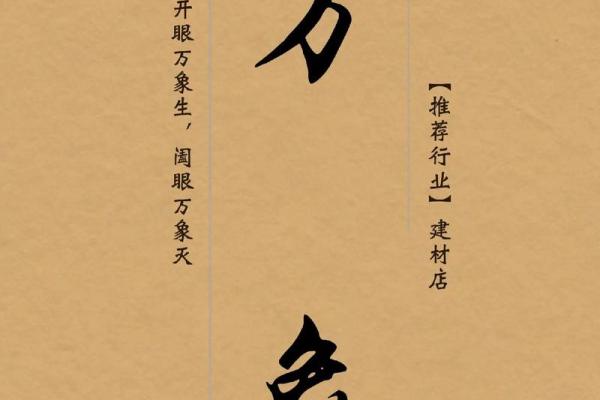 【推荐行业】建材店
万象
开眼万象生，阖眼万象灭